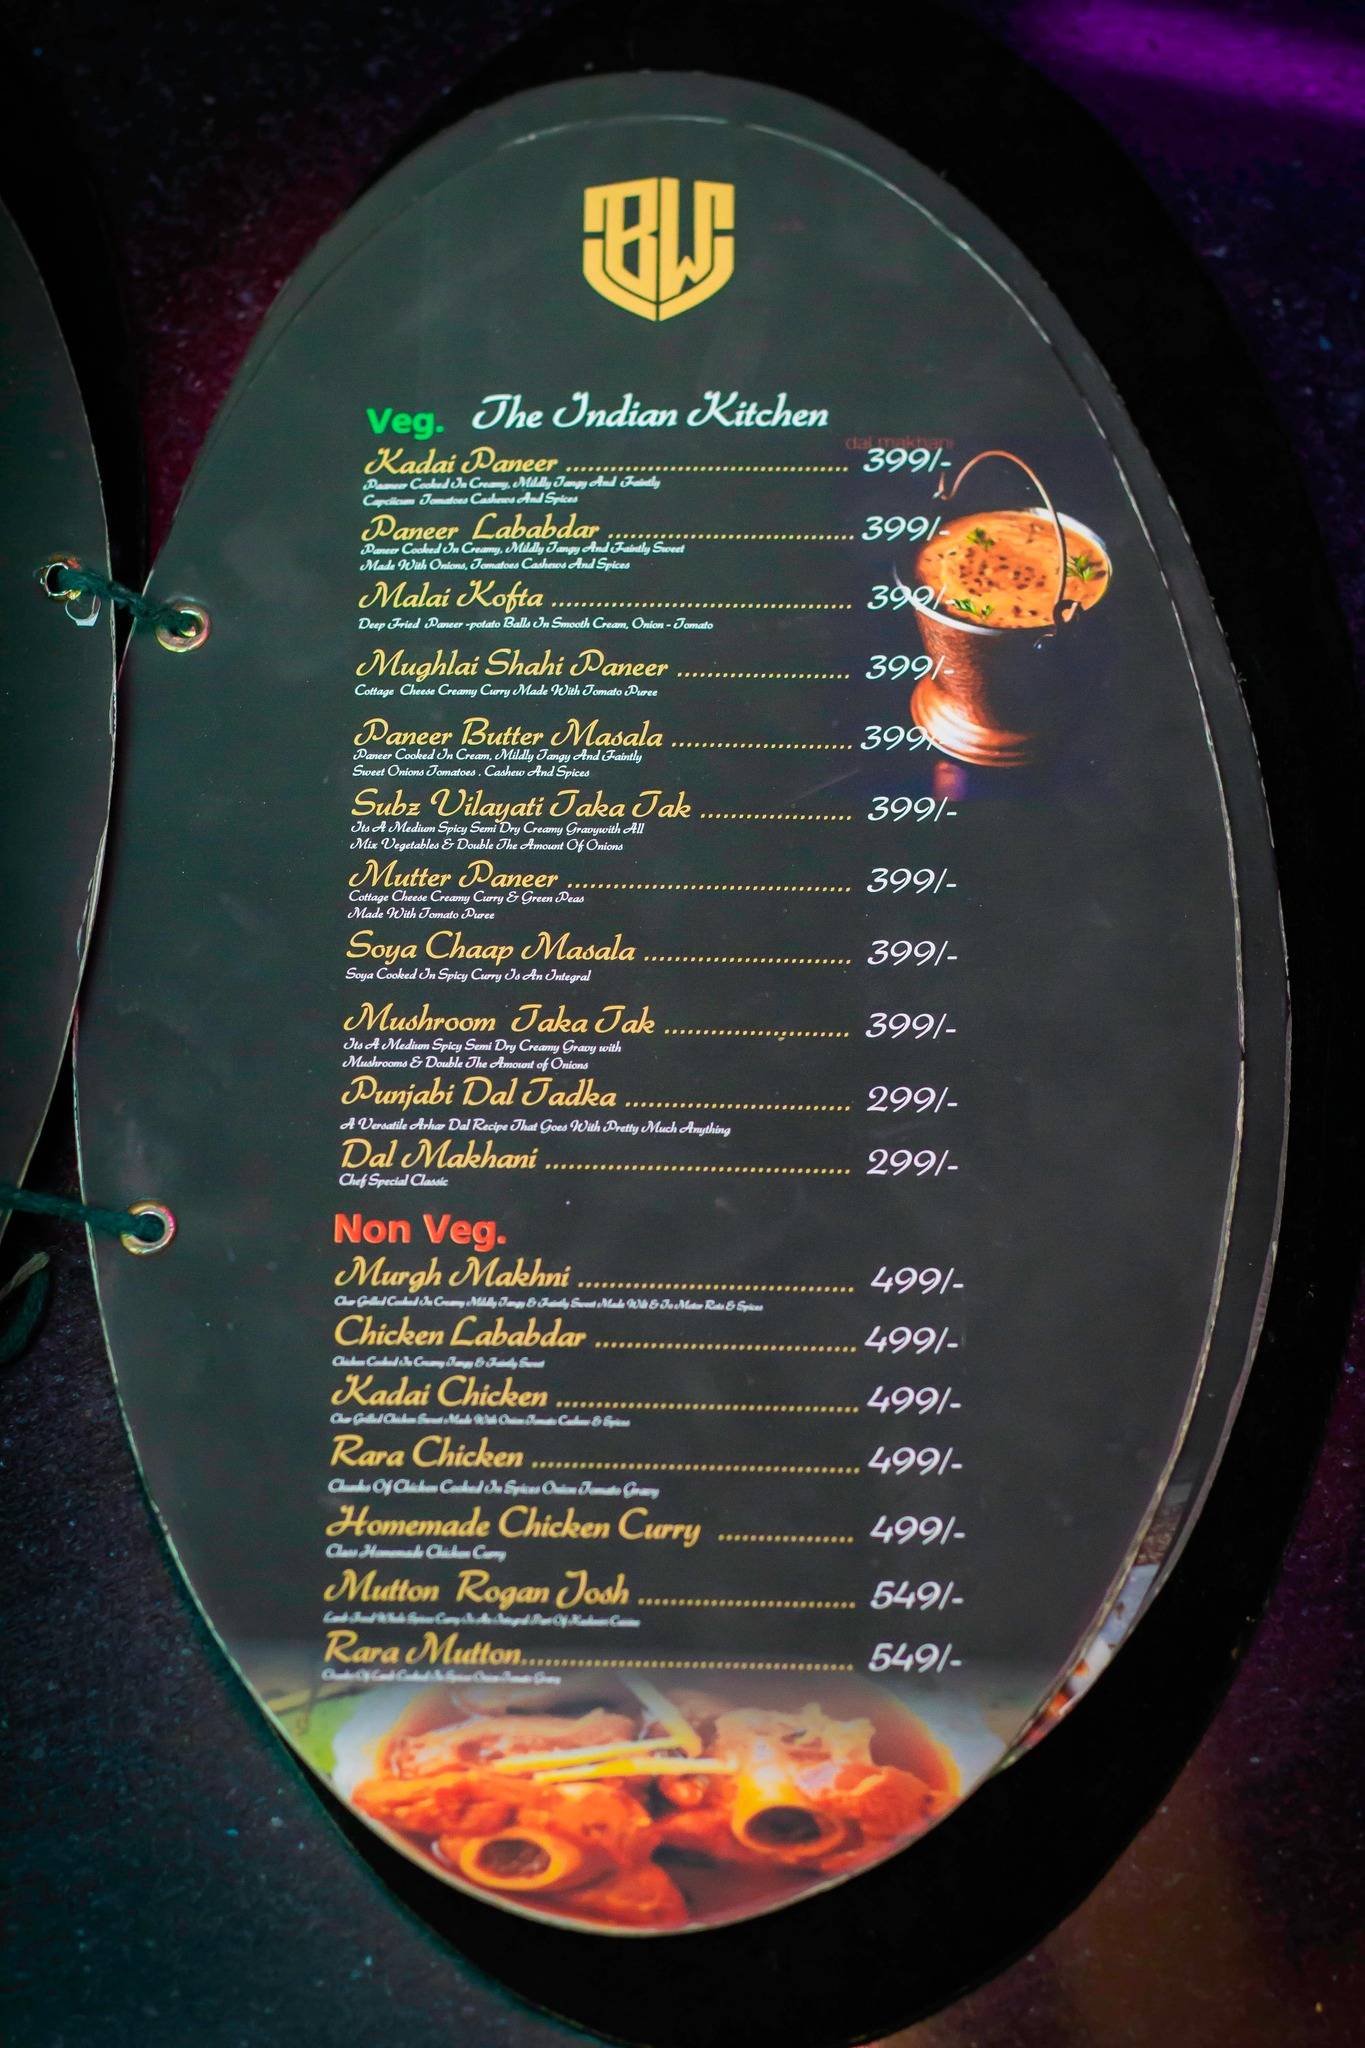 BW
Veg. The Indian Kitchen
dal makhani
Kadai Paneer .......................................... 399/-
Paaneer Cooked In Creamy, Mildly Tangy And Faintly
Capciicum Tomatoes Cashews And Spices
Paneer Lababdar .................................... 399/-
Paneer Cooked In Creamy, Mildly Tangy And Faintly Sweet
Made With Onions, Tomatoes Cashews And Spices
Malai Kofta ............................................ 399/-
Deep Fried Paneer -potato Balls In Smooth Cream, Onion - Tomato
Mughlai Shahi Paneer .......................... 399/-
Cottage Cheese Creamy Curry Made With Tomato Puree
Paneer Butter Masala ........................... 399/-
Paneer Cooked In Cream, Mildly Tangy And Faintly
Sweet Onions Tomatoes . Cashew And Spices
Subz Vilayati Taka Tak ....................... 399/-
Its A Medium Spicy Semi Dry Creamy Gravywith All
Mix Vegetables & Double The Amount Of Onions
Mutter Paneer .......................................... 399/-
Cottage Cheese Creamy Curry & Green Peas
Made With Tomato Puree
Soya Chaap Masala ............................... 399/-
Soya Cooked In Spicy Curry Is An Integral
Mushroom Taka Tak ........................... 399/-
Its A Medium Spicy Semi Dry Creamy Gravy with
Mushrooms & Double The Amount of Onions
Punjabi Dal Tadka ................................. 299/-
A Versatile Arhar Dal Recipe That Goes With Pretty Much Anything
Dal Makhani ............................................. 299/-
Chef Special Classic
Non Veg.
Murgh Makhni ........................................ 499/-
Char Grilled Cooked In Creamy Mildly Tangy & Faintly Sweet Made & Spices
Chicken Lababdar ...................................... 499/-
Chicken Cooked In Creamy Tangy & Faintly Sweet
Kadai Chicken ............................................ 499/-
Char Grilled Chicken Sweet Made With Onion Tomato Cashew & Spices
Rara Chicken ............................................... 499/-
Chunks Of Chicken Cooked In Spices Onion Tomato Gravy
Homemade Chicken Curry .................... 499/-
Class Homemade Chicken Curry
Mutton Rogan Josh ................................ 549/-
Lamb Whole Spices Curry Is An Integral Part Of
Rara Mutton................................................ 549/-
Chunks Of Lamb Cooked In Spices Onion Tomato Gravy